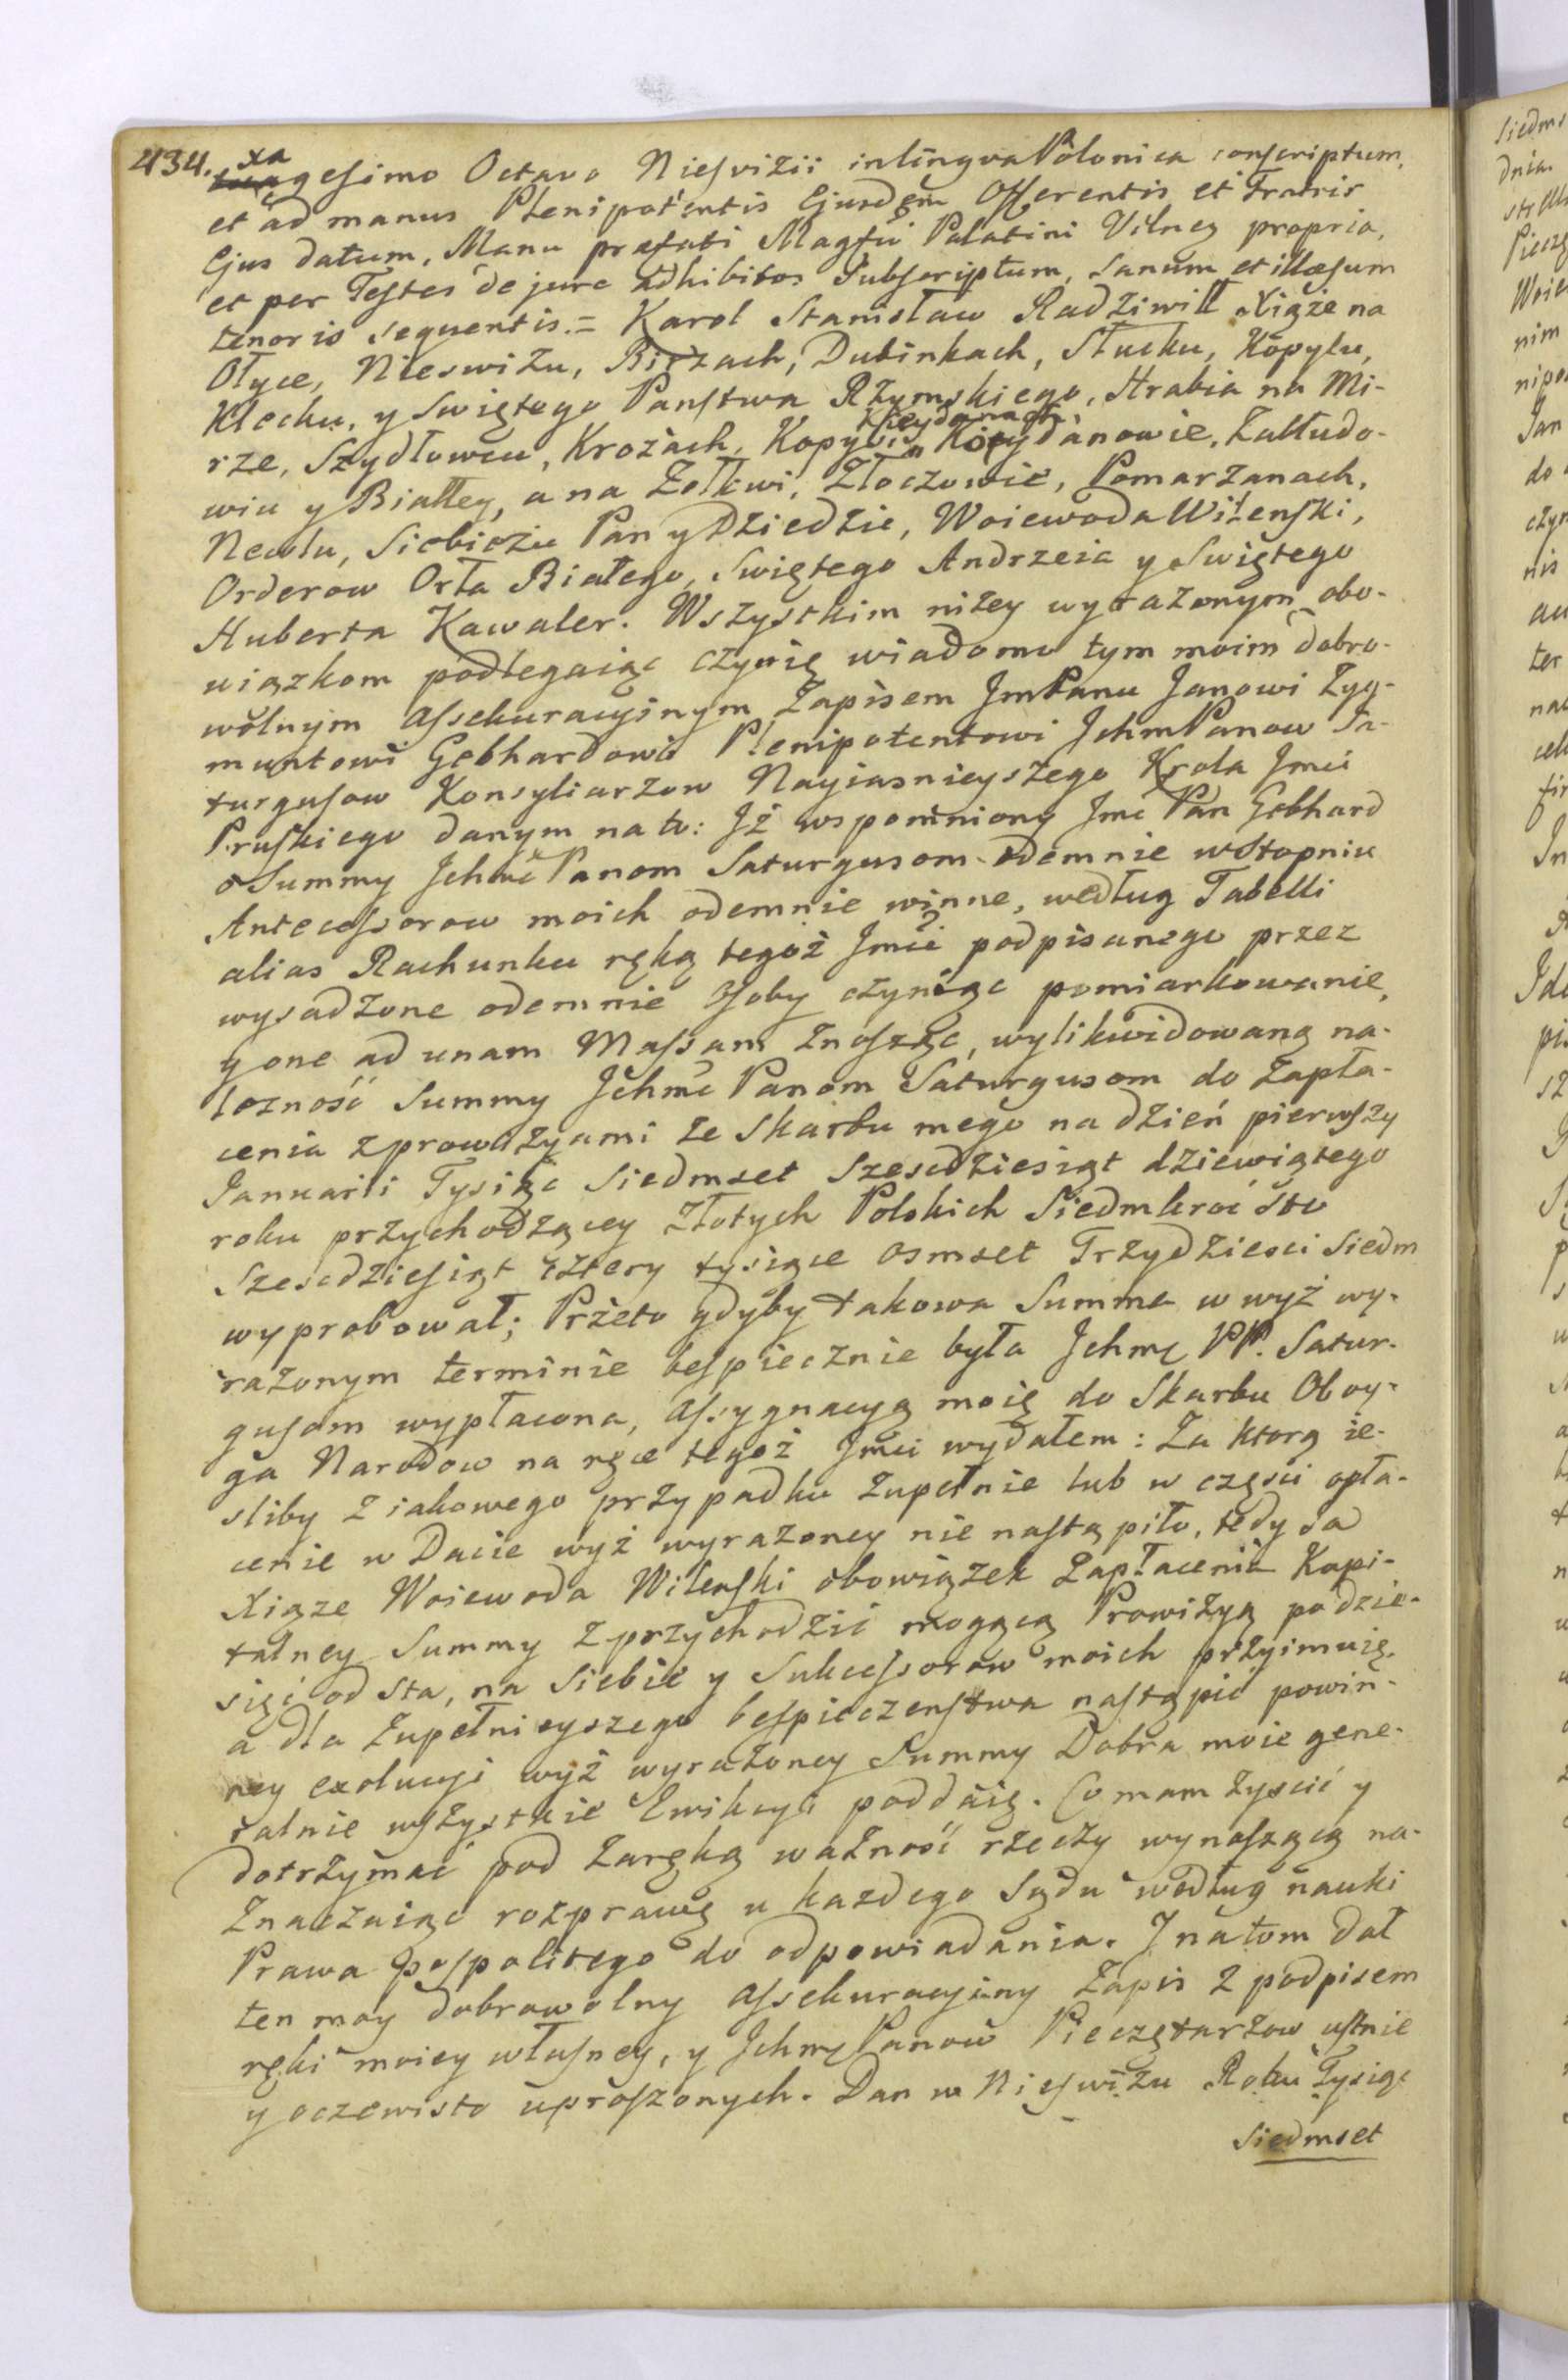 434. xagesimo Octavo Niesvizii in lingva Polonica conscriptum,
et ad manus Plenipotentis Ejusdem Offerentis et Fratris
Ejus datum, Manu præfati Magfci Palatini Vilneg propria,
et per Testes de jure adhibitos Subscriptum, Sanum et illæsum
tenoris sequentis.= Karol Stanisław Radziwiłł Xiąże na
Ołyce, Nieswiżu, Birżach, Dubinkach, Słucku, Kopylu,
Klecku, y Swiętego Panstwa Rzymskiego, Hrabia na Mi-
rze, Szydłowcu, Krożach, Kopysiu, Kieydanach, Koydanowie, Zabłudo-
wiu y Białłey, a na Zołkwi, Złoczowie, Pomarzanach,
Newlu, Siebieżu Pan y Dziedzic, Woiewoda Wilenski,
Orderow Orła Białego, Swiętego Andrzeia y Swiętego
Huberta Kawaler. Wszystkim niżey wyrażonym obo-
wiązkom podlegaiąc czynię wiadomo tym moim dobro-
wolnym assekuracyinym Zapisem JmPanu Janowi Zyg-
muntowi Gebhardowi Plenipotentowi JchmPanow Sa-
turgusow Konsyliarzow Nayiasnieyszego Krola Jmci
Pruskiego danym na to: Jż wspomniony Jmc Pan Gebhard
o Summy Jchmc Panom Saturgusom odemnie w Stopniu
Antecessorow moich odemnie winne, według Tabelli
alias Rachunku ręką tegoż Jmci podpisanego przez
wysadzone odemnie Osoby czyniąc pomiarkowanie,
y one ad unam Massam znosząc, wylikwidowaną na-
leżność Summy Jchmc Panom Saturgusom do zapła-
cenia z prowizyami ze Skarbu mego na dzień pierwszy
Januarii Tysiąc Siedmset Szescdziesiąt dziewiątego
roku przychodzącey Złotych Polskich Siedmkroć Sto
Szescdziesiąt cztery tysiące osmset Trzydziesci Siedm
wyprobował; Przeto gdyby takowa Summa w wyż wy-
rażonym terminie bespiecznie była Jchmc PP. Satur-
gusom wypłacona, assygnacyą moię do Skarbu Oboy-
ga Narodow na ręce tegoż Jmci wydałem: Za ktorą ie-
sliby z iakowego przypadku zupełnie lub w częsci opła-
cenie w Dacie wyż wyrażoney nie nastąpiło, tedy Ja
Xiąze Woiewoda Wilenski obowiązek Zapłacenia Kapi-
talney Summy z przychodzić mogącą Prowizyą po dzie-
sięć od Sta, na Siebie y Sukcessorow moich przyimuię,
a dla zupełnieyszego bespieczenstwa nastąpić powin-
ney exolucyi wyż wyrażoney Summy Dobra moie gene-
ralnie wszystkie Ewikcyi poddaię. Co mam zyscić y
dotrzymać pod Zaręką ważność rzeczy wynoszącą na-
znaczaiąc rozprawę u każdego Sądu według nauki
Prawa pospolitego do odpowiadania. J na tom dał
ten moy dobrowolny assekuracyiny Zapis z podpisem
ręki moiey własney, y Jchmc Panow Pieczętarzow ustnie
y oczewisto uproszonych. Dan w Nieswiżu Roku Tysiąc
Siedmset